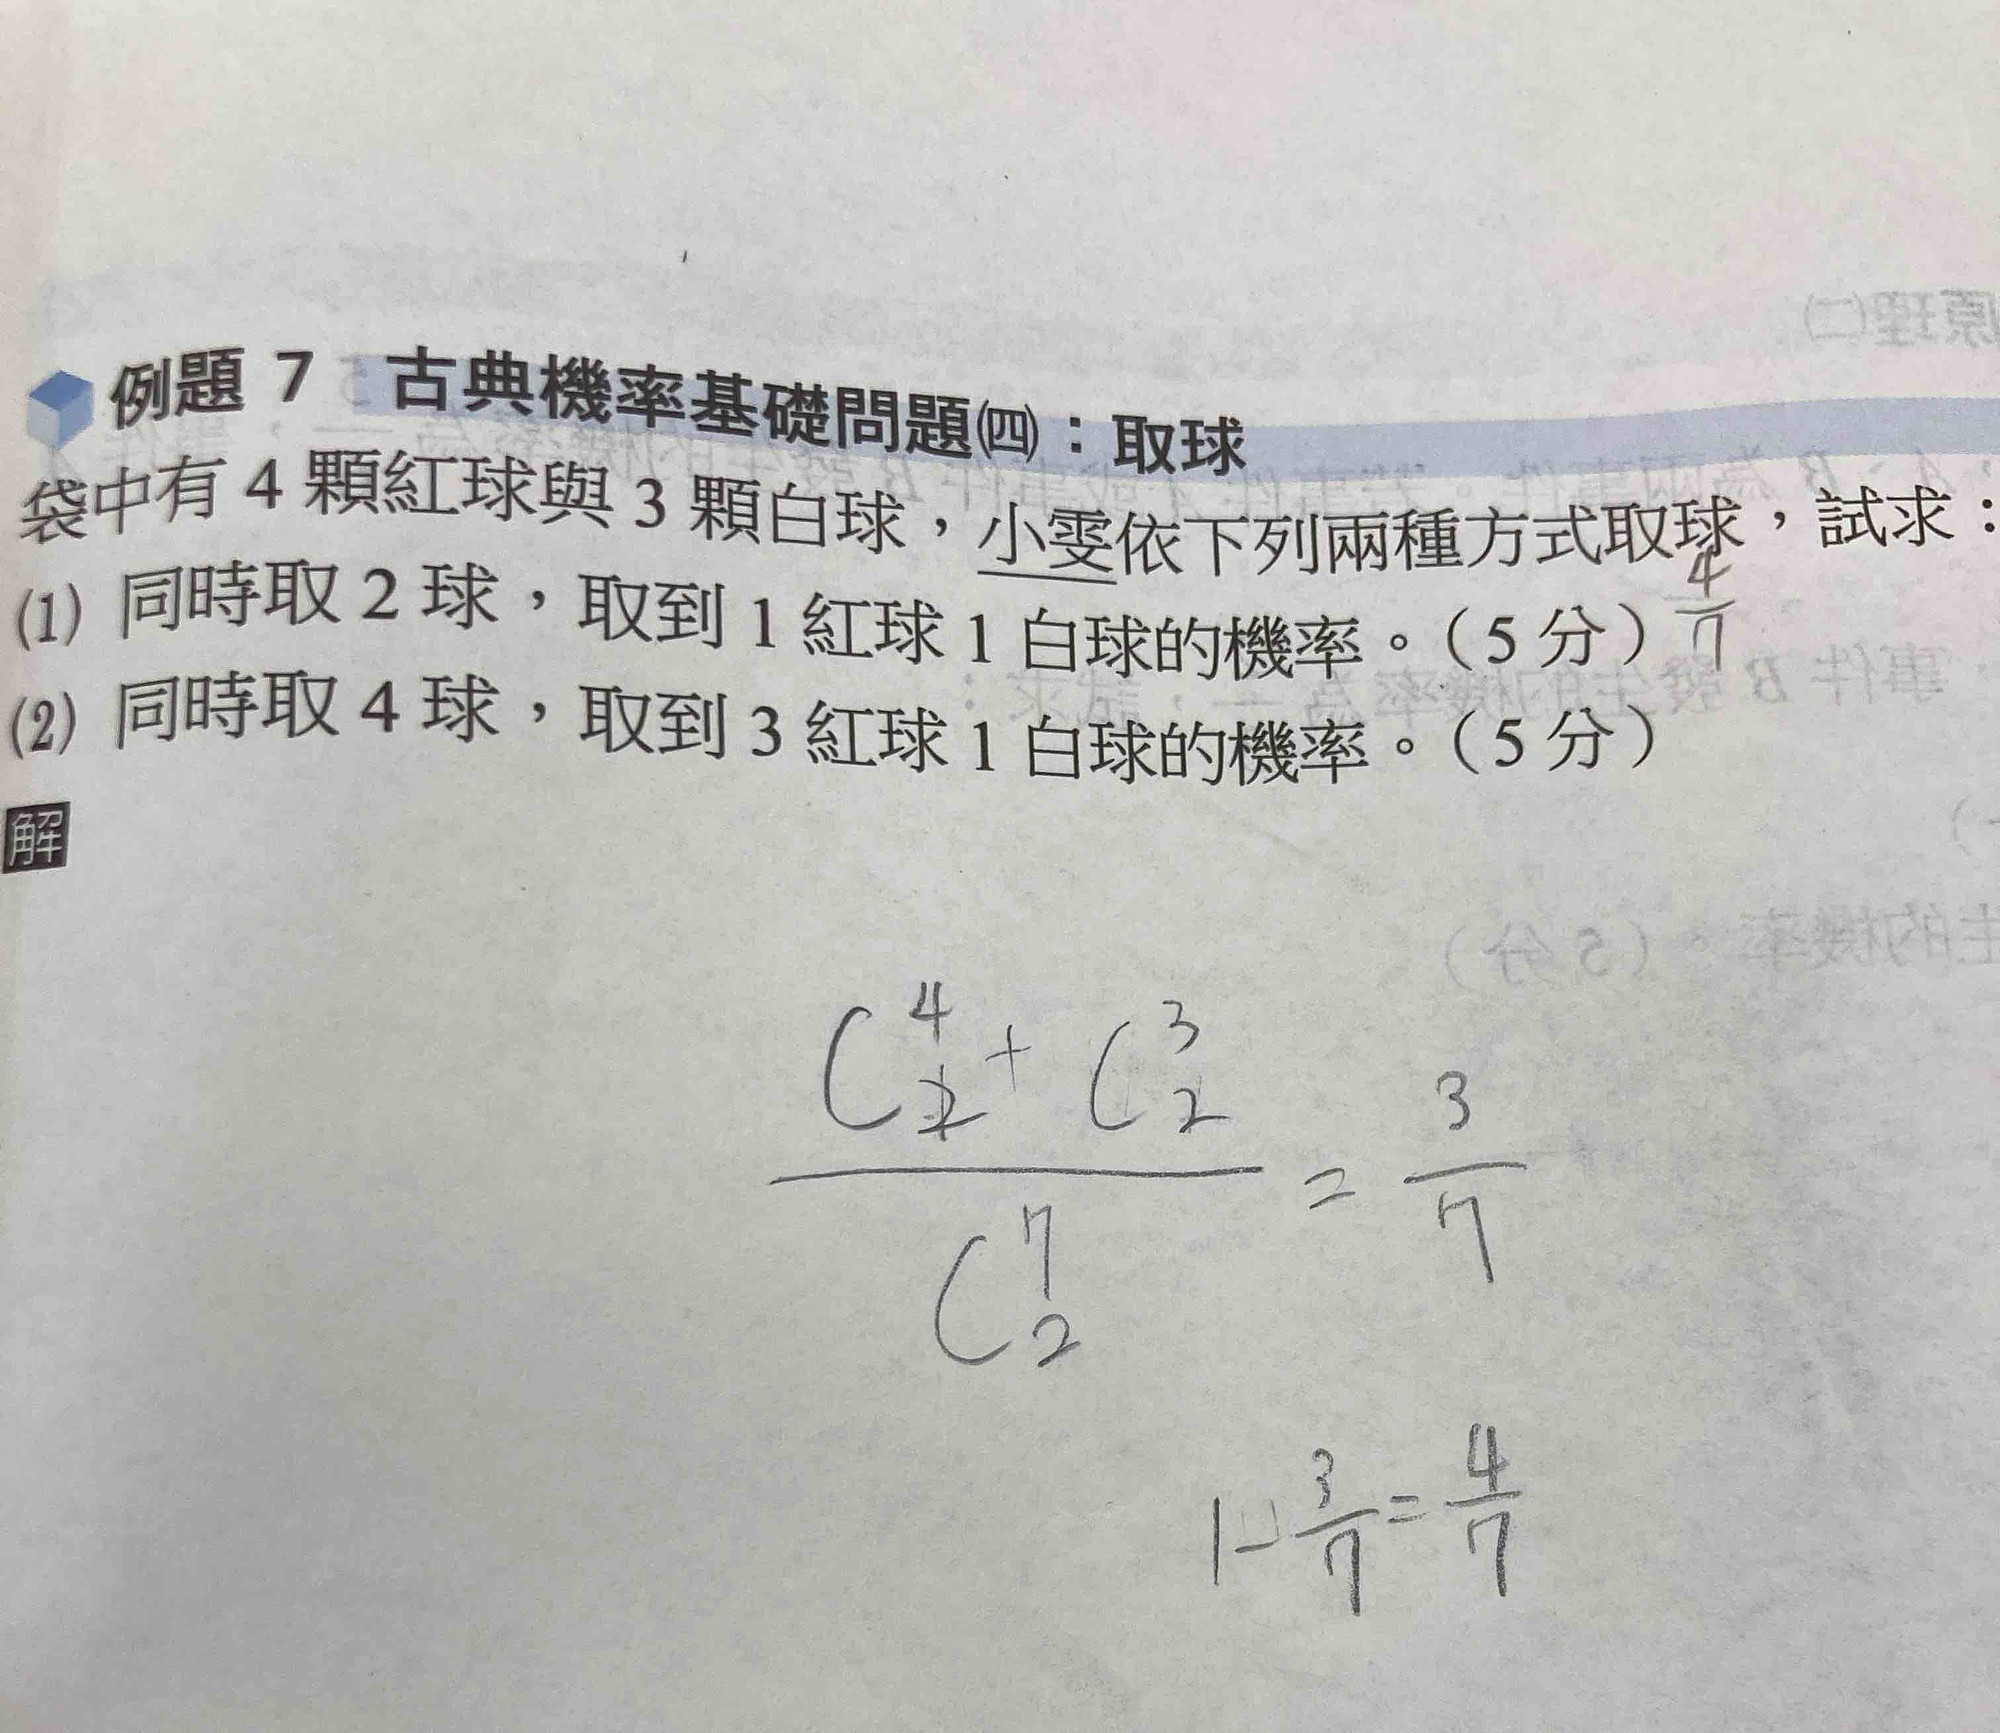 例題 7 古典機率基礎問題㈣：取球
袋中有 4 顆紅球與 3 顆白球，小雯依下列兩種方式取球，試求：
(1) 同時取 2 球，取到 1 紅球 1 白球的機率。（5 分） 4/7
(2) 同時取 4 球，取到 3 紅球 1 白球的機率。（5 分）
解
C⁴₂ + C³₂
= 3/7
C⁷₂
1 - 3/7 = 4/7